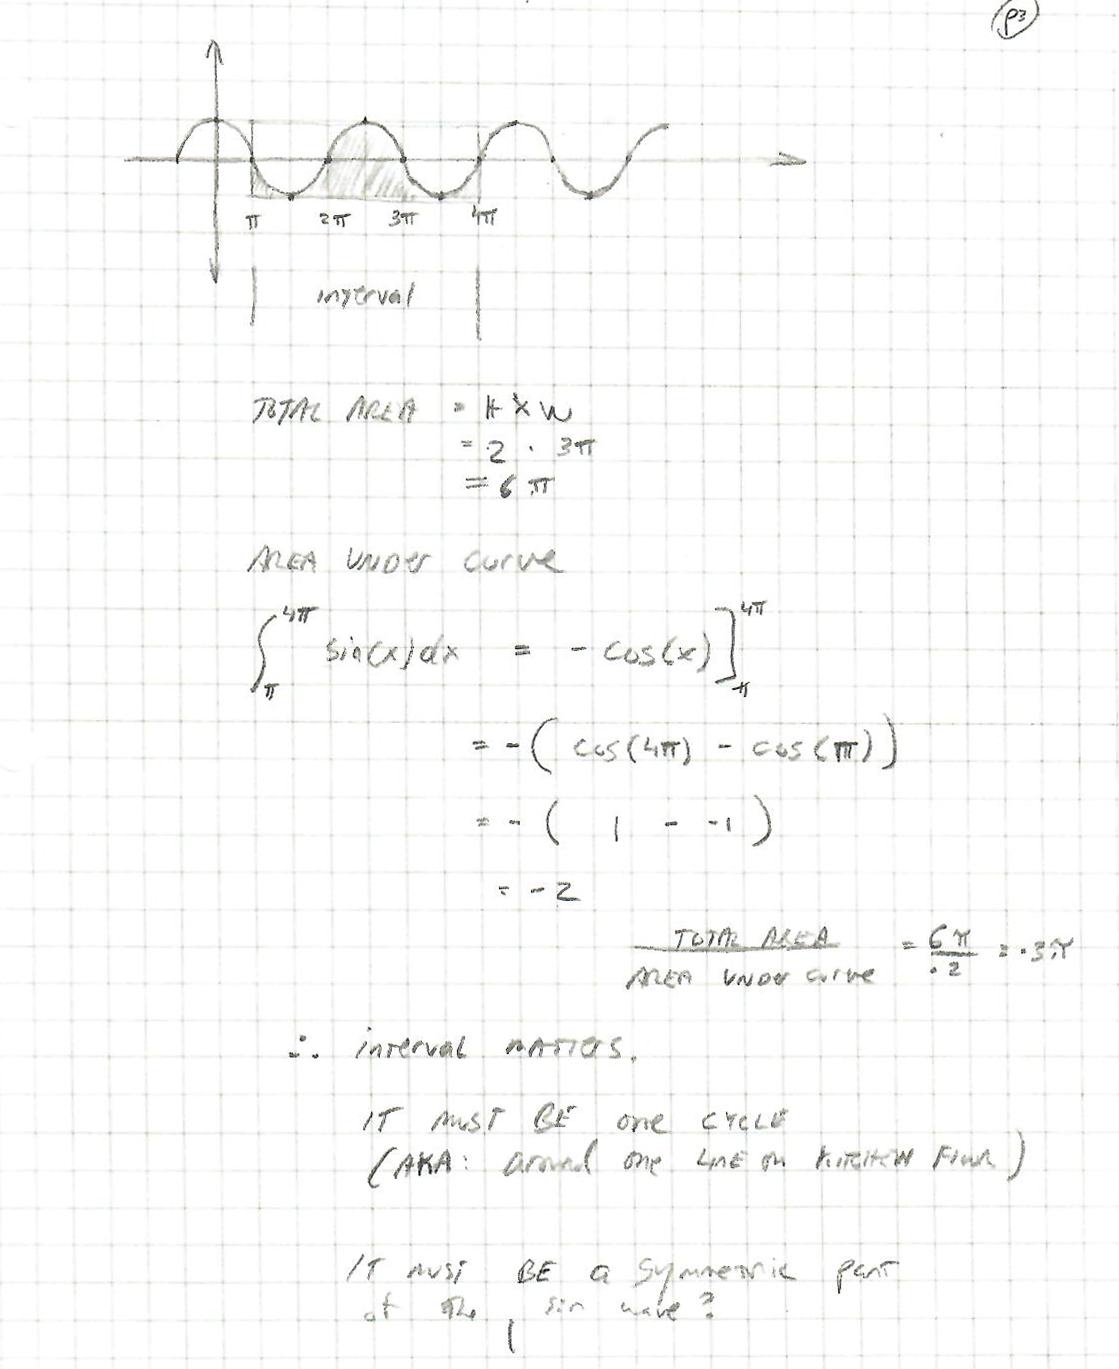 p3
π 2π 3π 4π
interval
TOTAL AREA = H × W
= 2 · 3π
= 6 π
AREA UNDER CURVE
∫_π^{4π} sin(x)dx = - cos(x) ]_π^{4π}
= - ( cos(4π) - cos(π) )
= - ( 1 - -1 )
= -2
TOTAL AREA / AREA UNDER CURVE = 6π / .2 = .3π
∴ interval MATTERS.
IT MUST BE one CYCLE
(AKA: around one LINE on KITCHEN FLOOR)
IT MUST BE a symmetric part
of the sin wave?